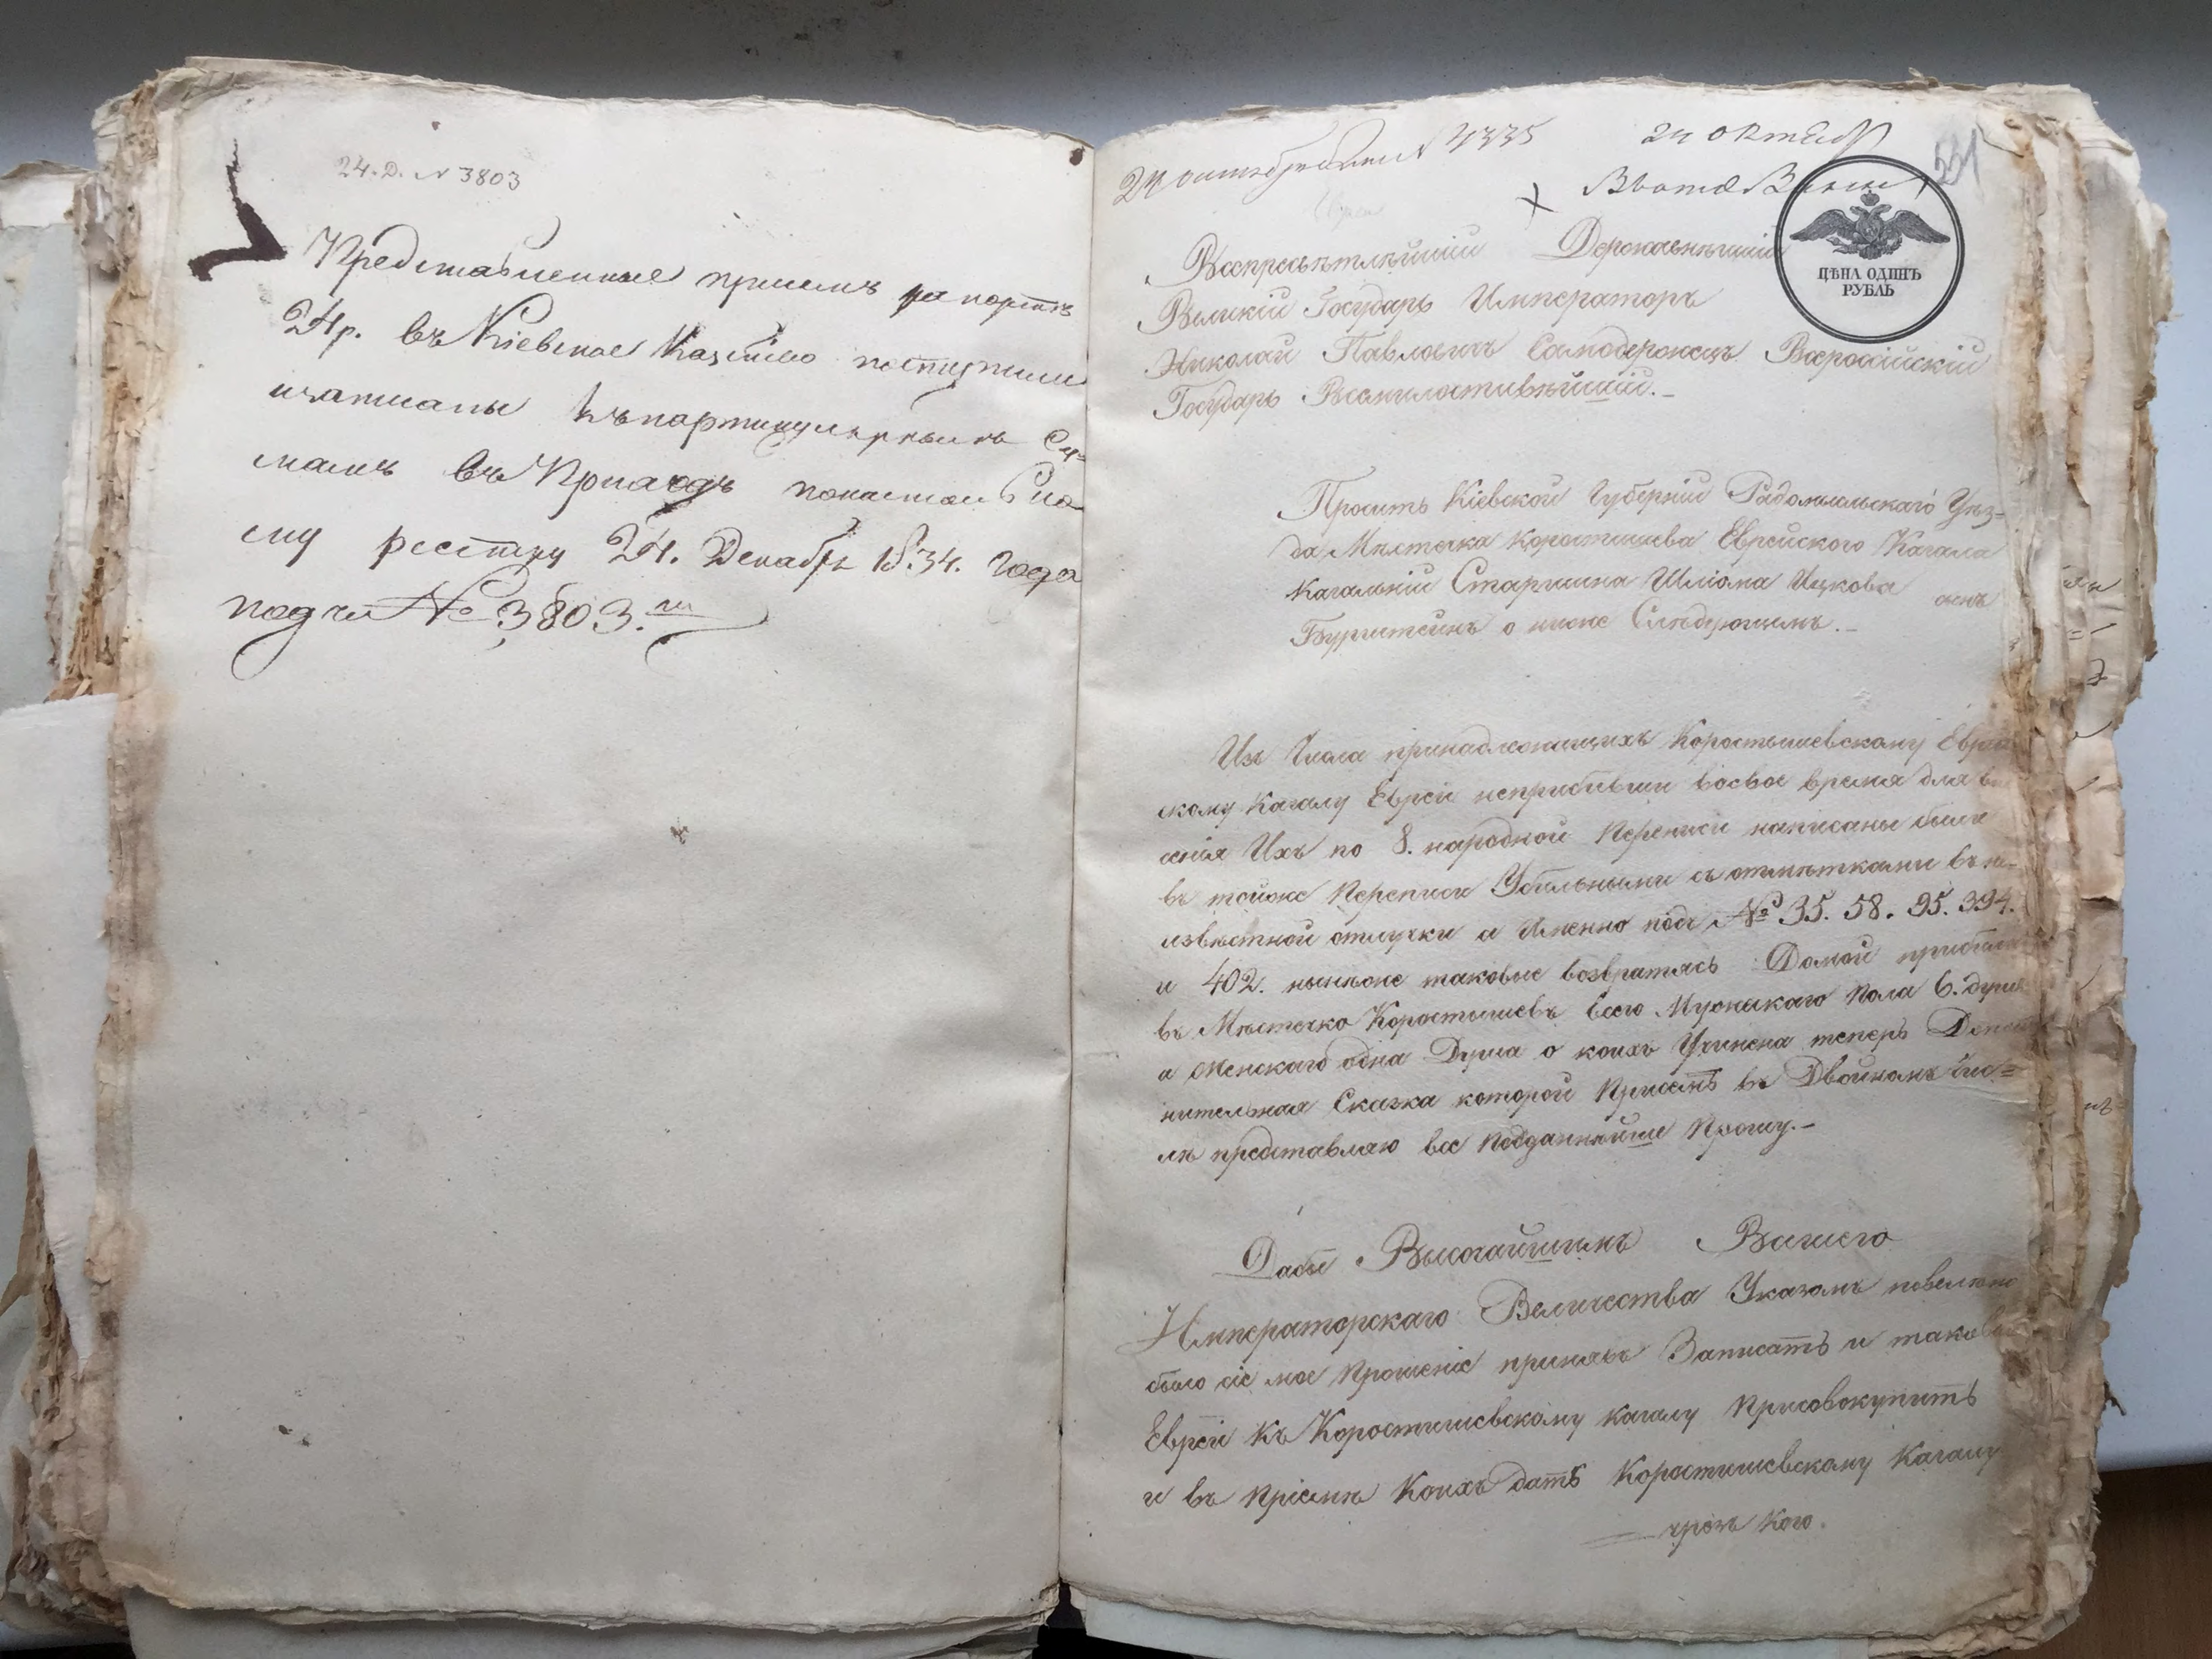 24. Д. № 3803
Представленные присемъ рапортѣ
24 р. въ Кіевское Казн–во поступили
и записаны къ партикулярнымъ Сум=
мамъ въ Приходъ по настольно
му реестру 24. Декабря 1834. года
под № 3803.
24 октября № 4335
24 октября
221
ЦѢНА ОДИНЪ
РУБЛЬ
Всепресвѣтлѣйшій Державнѣйшій
Великій Государь Императоръ
Николай Павловичъ Самодержецъ Всероссійскій
Государь Всемилостивѣйшій.–
Проситъ Кіевской Губерніи Радомысльскаго Уѣз=
да Мѣстечка Коростишева Еврейского Кагала
Кагальній Старшина Шліома Ицкова сынъ
Бурштейнъ о ниже Слѣдующемъ.–
Изъ Числа принадлежащихъ Коростышевскому Еврей
скому Кагалу Евреи неприбывши восвое время для
санія Ихъ по 8. народной Переписи написаны были
въ тойже Переписи Убыльными съ отмѣтками въ не–
извѣстной отлучки а Именно подъ № 35. 58. 95. 394.
и 402. нынѣже таковые возвратясь Домой прибыли
въ Мѣстечко Коростышевъ всего Мужескаго Пола 6. душъ
а женскаго одна Душа о коихъ Учинена теперь Допол
нительная Сказка которой Присемъ въ Двойномъ Чис=
лѣ представляю все Подданнѣйше Прошу.–
Дабы Высочайшимъ Вашего
Императорскаго Величества Указомъ повелѣно
было сіе мое Прошеніе принявъ Записать и таковыхъ
Евреи къ Коростишевскому кагалу Присовокупить
и въ Пріемѣ Коихъ дать Коростишевскому Кагалу
чрезъ Кого.